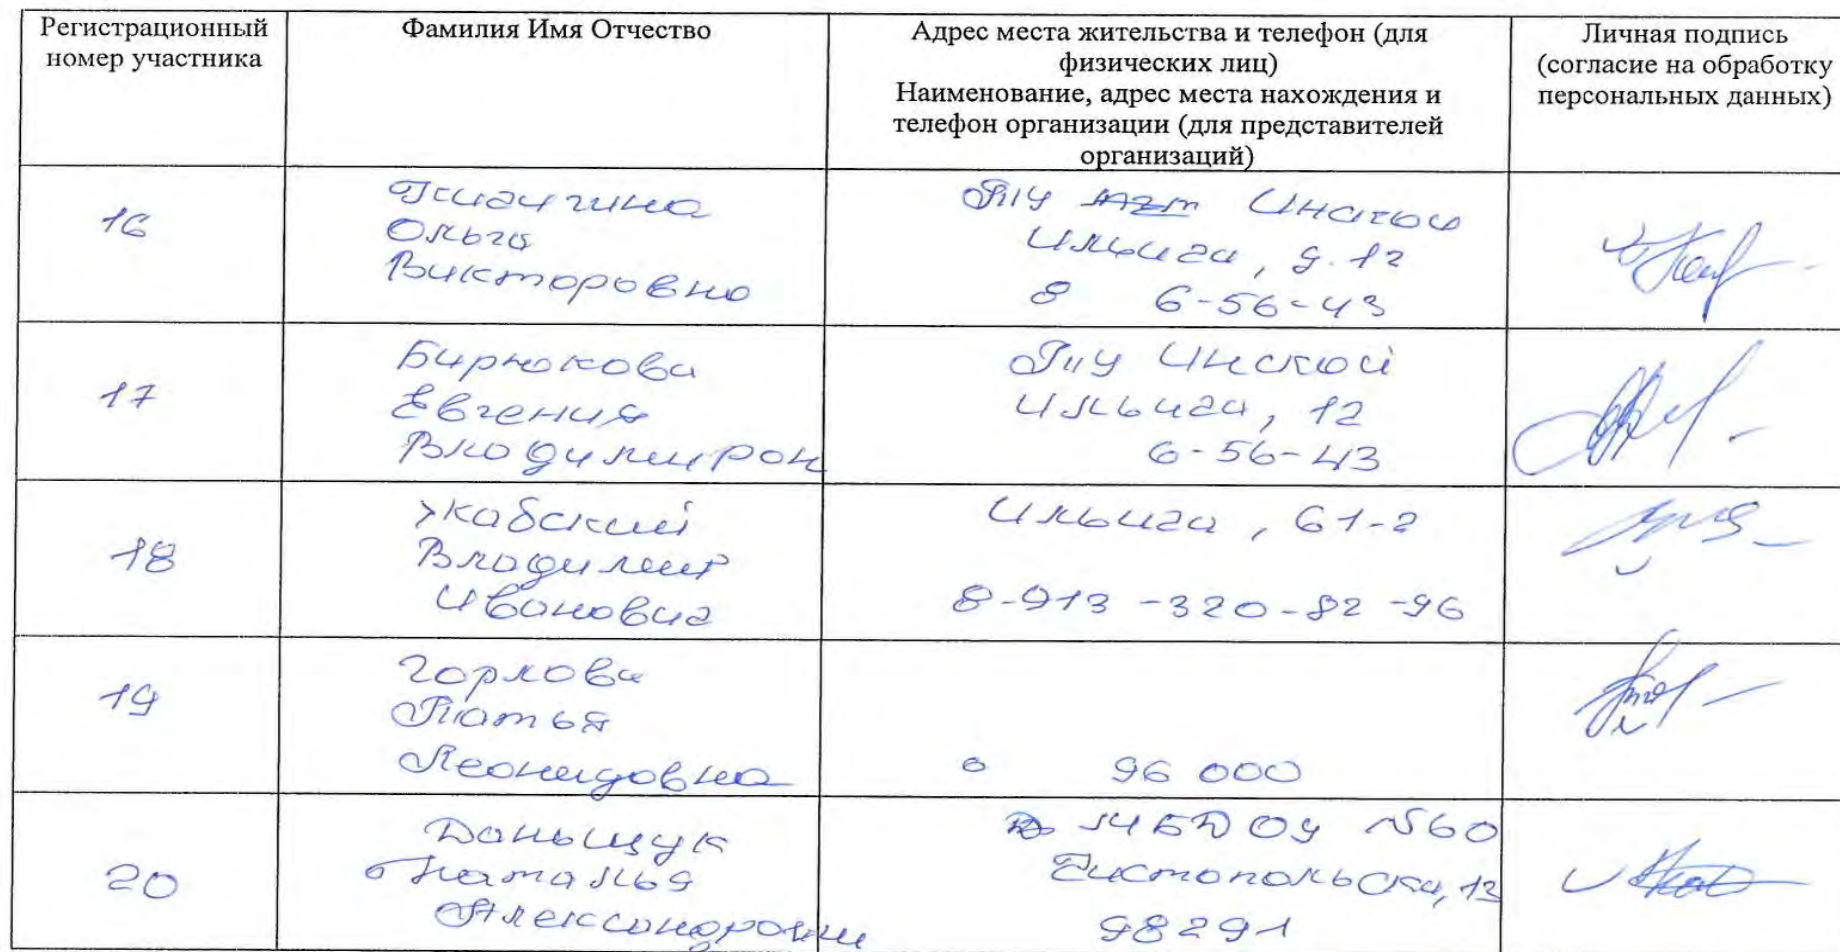 Регистрационный номер участника
Фамилия Имя Отчество
Адрес места жительства и телефон (для физических лиц)
Наименование, адрес места нахождения и телефон организации (для представителей организаций)
Личная подпись (согласие на обработку персональных данных)
16
Ольга
Викторовна
Инской
Ильича, д. 12
8 6-56-43
17
Бирюкова
Евгения
Владимирон
ТПУ Инской
Ильича, 12
6-56-43
18
Жабский
Владимир
Иванович
Ильича, 61-2
8-913-320-82-96
19
Горлова
Татья
Леонидовна
96 000
20
Даньщук
Наталья
МБДОУ №60
Чистопольска, 13
98291